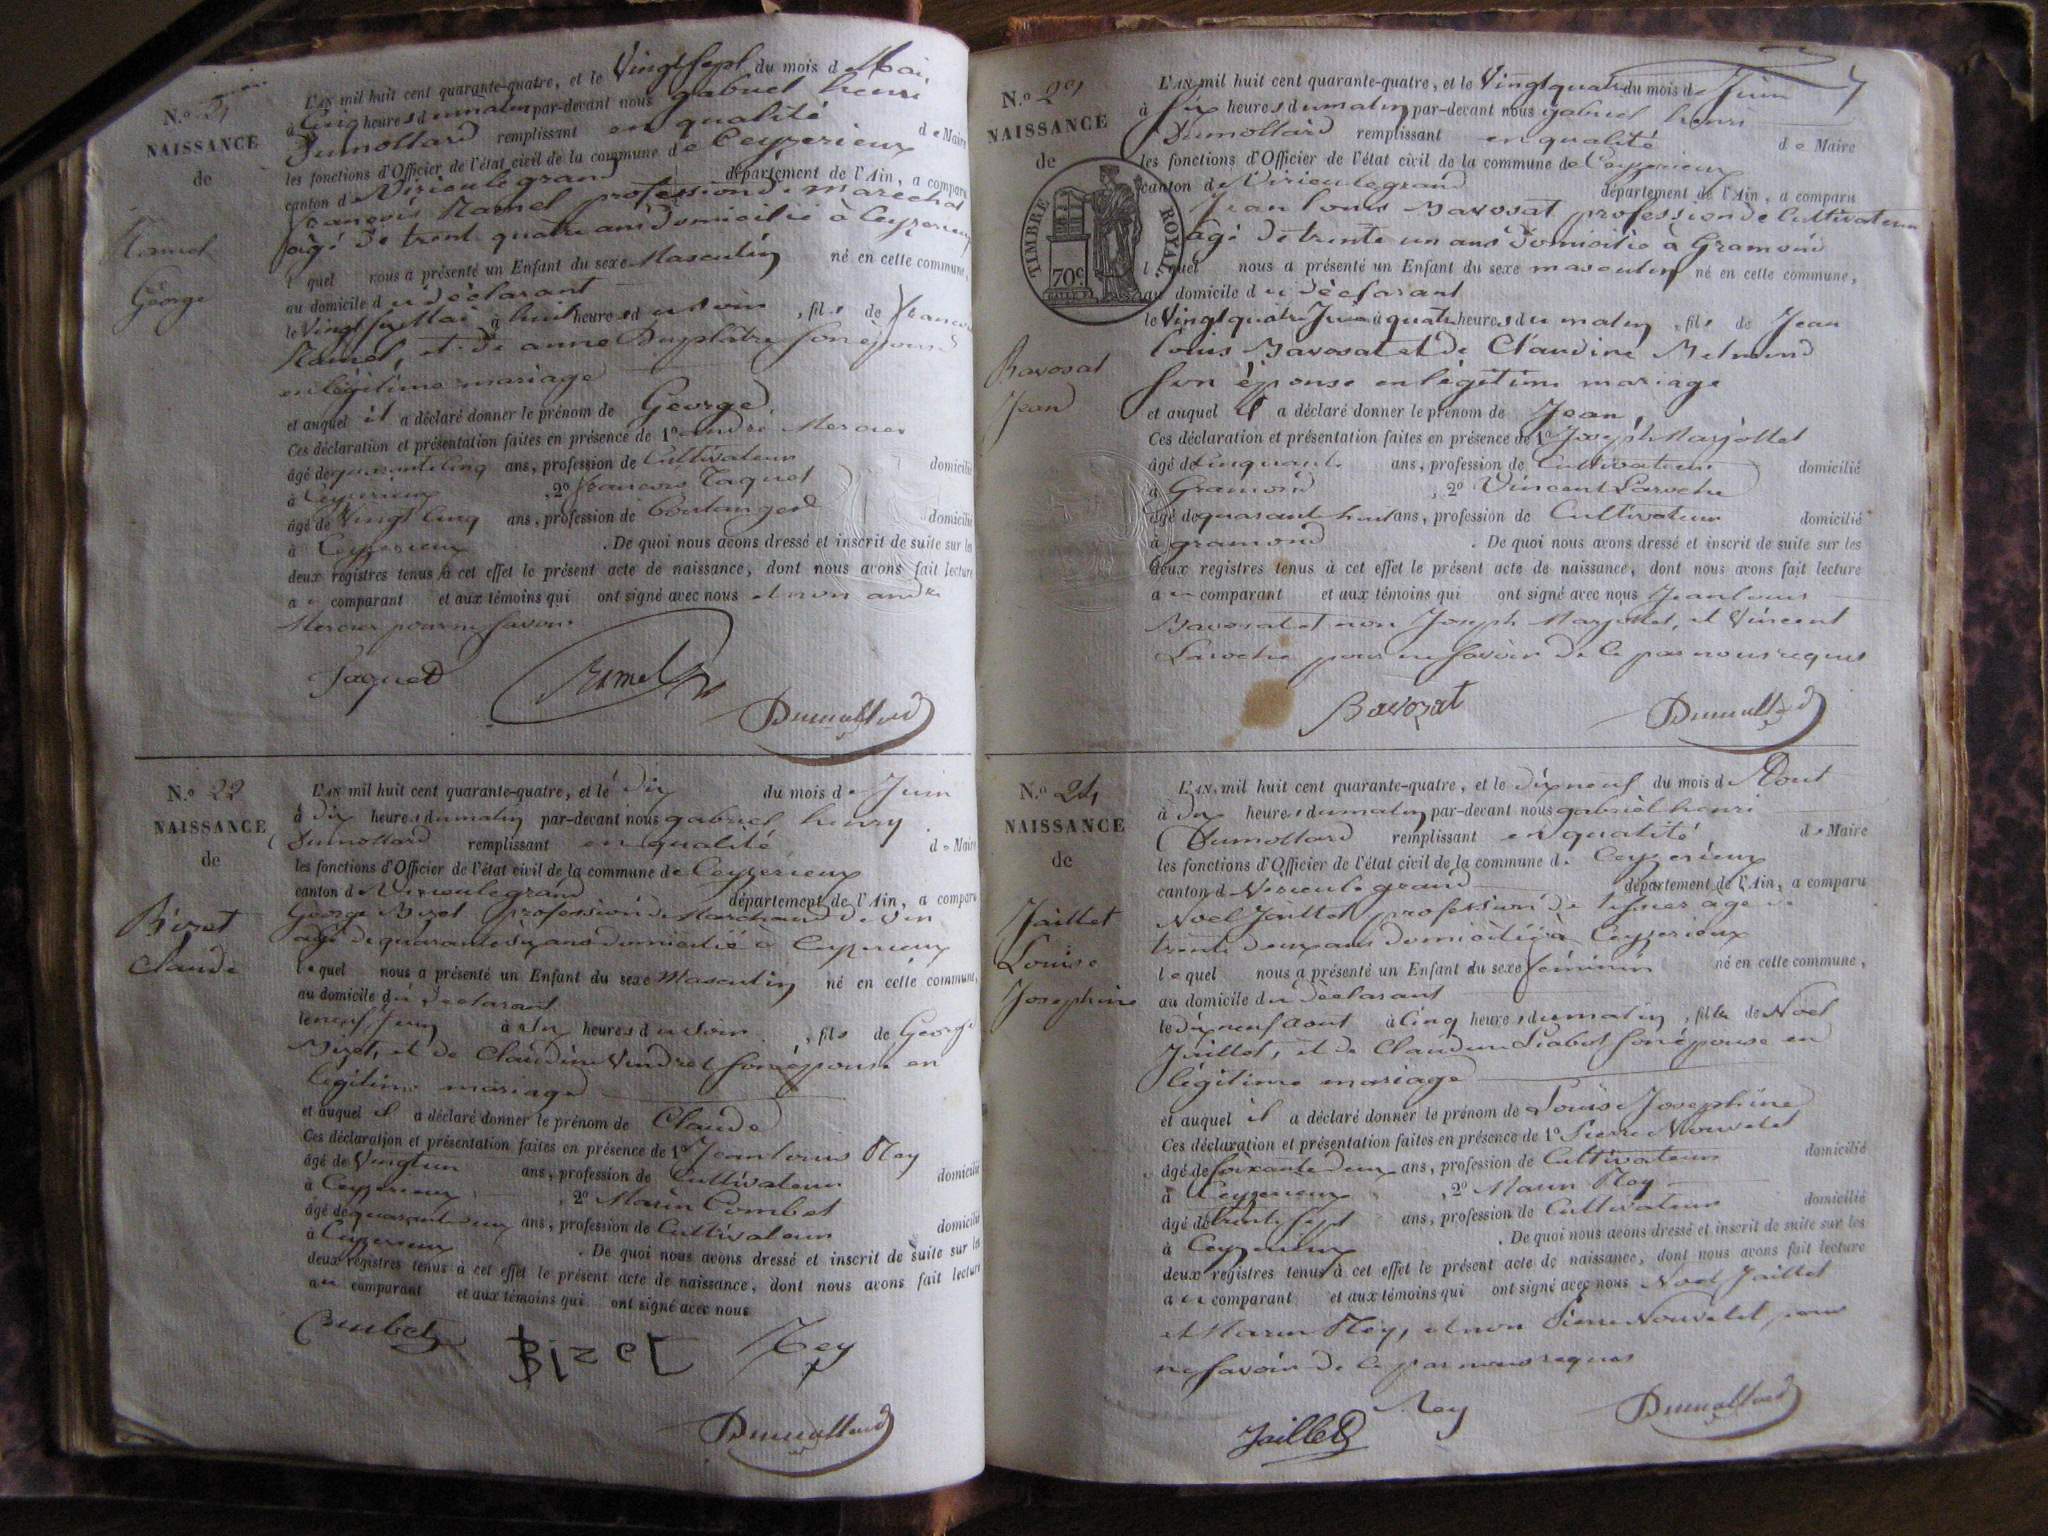 N.o 21
NAISSANCE
de
Ramel
George
L'AN mil huit cent quarante-quatre, et le Vingt sept du mois de Mai,
à Cinq heures du matin par-devant nous gabriel henri
Dumollard remplissant en qualité de Maire
les fonctions d'Officier de l'état civil de la commune de Ceyzerieux
canton de Virieu le grand département de l'Ain, a comparu
françois Ramel profession de maréchal
âgé de trent quatre ans domicilié à Ceyzerieux
l quel nous a présenté un Enfant du sexe Masculin né en cette commune,
au domicile du déclarant
le Vingt six Mai à huit heures du soir, fils de françois
Ramel, et de anne Duplatre son épouse
en légitime mariage
et auquel il a déclaré donner le prénom de George,
Ces déclaration et présentation faites en présence de 1o andré Mercier
âgé de quarante cinq ans, profession de Cultivateur domicilié
à Ceyzerieux, 2o françois Jaquet
âgé de Vingt Cinq ans, profession de boulanger domicilié
à Ceyzerieux. De quoi nous avons dressé et inscrit de suite sur les
deux registres tenus à cet effet le présent acte de naissance, dont nous avons fait lecture
au comparant et aux témoins qui ont signé avec nous et non andré
Mercier pour ne savoir.
Jaquet Ramel
Dumollard
N.o 22
NAISSANCE
de
Bizet
Claude
L'AN mil huit cent quarante-quatre, et le dix du mois de Juin
à dix heures du matin par-devant nous gabriel henry
Dumollard remplissant en qualité de Maire
les fonctions d'Officier de l'état civil de la commune de Ceyzerieux
canton de Virieu le grand département de l'Ain, a comparu
George Bizet profession de Marchand de vin
âgé de quarante six ans domicilié à Ceyzerieux
lequel nous a présenté un Enfant du sexe Masculin né en cette commune,
au domicile du déclarant
le neuf Juin à six heures du soir, fils de George
Bizet, et de Claudine Vindret son épouse en
légitime mariage
et auquel il a déclaré donner le prénom de Claude
Ces déclaration et présentation faites en présence de 1o Jean louis Rey
âgé de Vingt un ans, profession de Cultivateur domicilié
à Ceyzerieux, 2o Marin Combet
âgé de quarante ans, profession de Cultivateur domicilié
à Ceyzerieux. De quoi nous avons dressé et inscrit de suite sur les
deux registres tenus à cet effet le présent acte de naissance, dont nous avons fait lecture
au comparant et aux témoins qui ont signé avec nous
Combet Bizet Rey
Dumollard
N.o 23
NAISSANCE
de
TIMBRE ROYAL
70c
Bavosat
Jean
L'AN mil huit cent quarante-quatre, et le Vingt quatre du mois de Juin
à six heures du matin par-devant nous gabriel henri
Dumollard remplissant en qualité de Maire
les fonctions d'Officier de l'état civil de la commune de Ceyzerieux
canton de Virieu le grand département de l'Ain, a comparu
Jean louis Bavosat profession de Cultivateur
âgé de trente un ans domicilié à Gramond
l quel nous a présenté un Enfant du sexe masculin né en cette commune,
au domicile du déclarant
le Vingt quatre Juin à quatre heures du matin, fils de Jean
louis Bavosat et de Claudine
son épouse en légitime mariage
et auquel il a déclaré donner le prénom de Jean,
Ces déclaration et présentation faites en présence de 1o Joseph Marjollet
âgé de Cinquante ans, profession de Cultivateur domicilié
à Gramond, 2o Vincent Laroche
âgé de quarante huit ans, profession de Cultivateur domicilié
à gramond. De quoi nous avons dressé et inscrit de suite sur les
deux registres tenus à cet effet le présent acte de naissance, dont nous avons fait lecture
au comparant et aux témoins qui ont signé avec nous Jean louis
Bavosat et non Joseph Marjollet, et Vincent
Laroche pour ne savoir de ce par nous requis
Bavozat Dumollard
N.o 24
NAISSANCE
de
Jaillet
Louise
Josephine
L'AN mil huit cent quarante-quatre, et le dix neuf du mois d'Aout
à dix heures du matin par-devant nous gabriel henri
Dumollard remplissant en qualité de Maire
les fonctions d'Officier de l'état civil de la commune de Ceyzerieux
canton de Virieu le grand département de l'Ain, a comparu
Noël Jaillet, profession de tissier agé de
trente deux ans domicilié à Ceyzerieux
lequel nous a présenté un Enfant du sexe féminin né en cette commune,
au domicile du déclarant
le dix neuf aout à Cinq heures du matin, fille de Noël
Jaillet, et de Claudine Liabot son épouse en
légitime mariage
et auquel il a déclaré donner le prénom de Louise Josephine
Ces déclaration et présentation faites en présence de 1o Pierre Nouvelet
âgé de soixante deux ans, profession de Cultivateur domicilié
à Ceyzerieux, 2o Marin Rey
âgé de trente sept ans, profession de Cultivateur domicilié
à Ceyzerieux. De quoi nous avons dressé et inscrit de suite sur les
deux registres tenus à cet effet le présent acte de naissance, dont nous avons fait lecture
au comparant et aux témoins qui ont signé avec nous Noël Jaillet
et Marin Rey, et non Pierre Nouvelet, pour
ne savoir de ce par nous requis
Jaillet Rey Dumollard